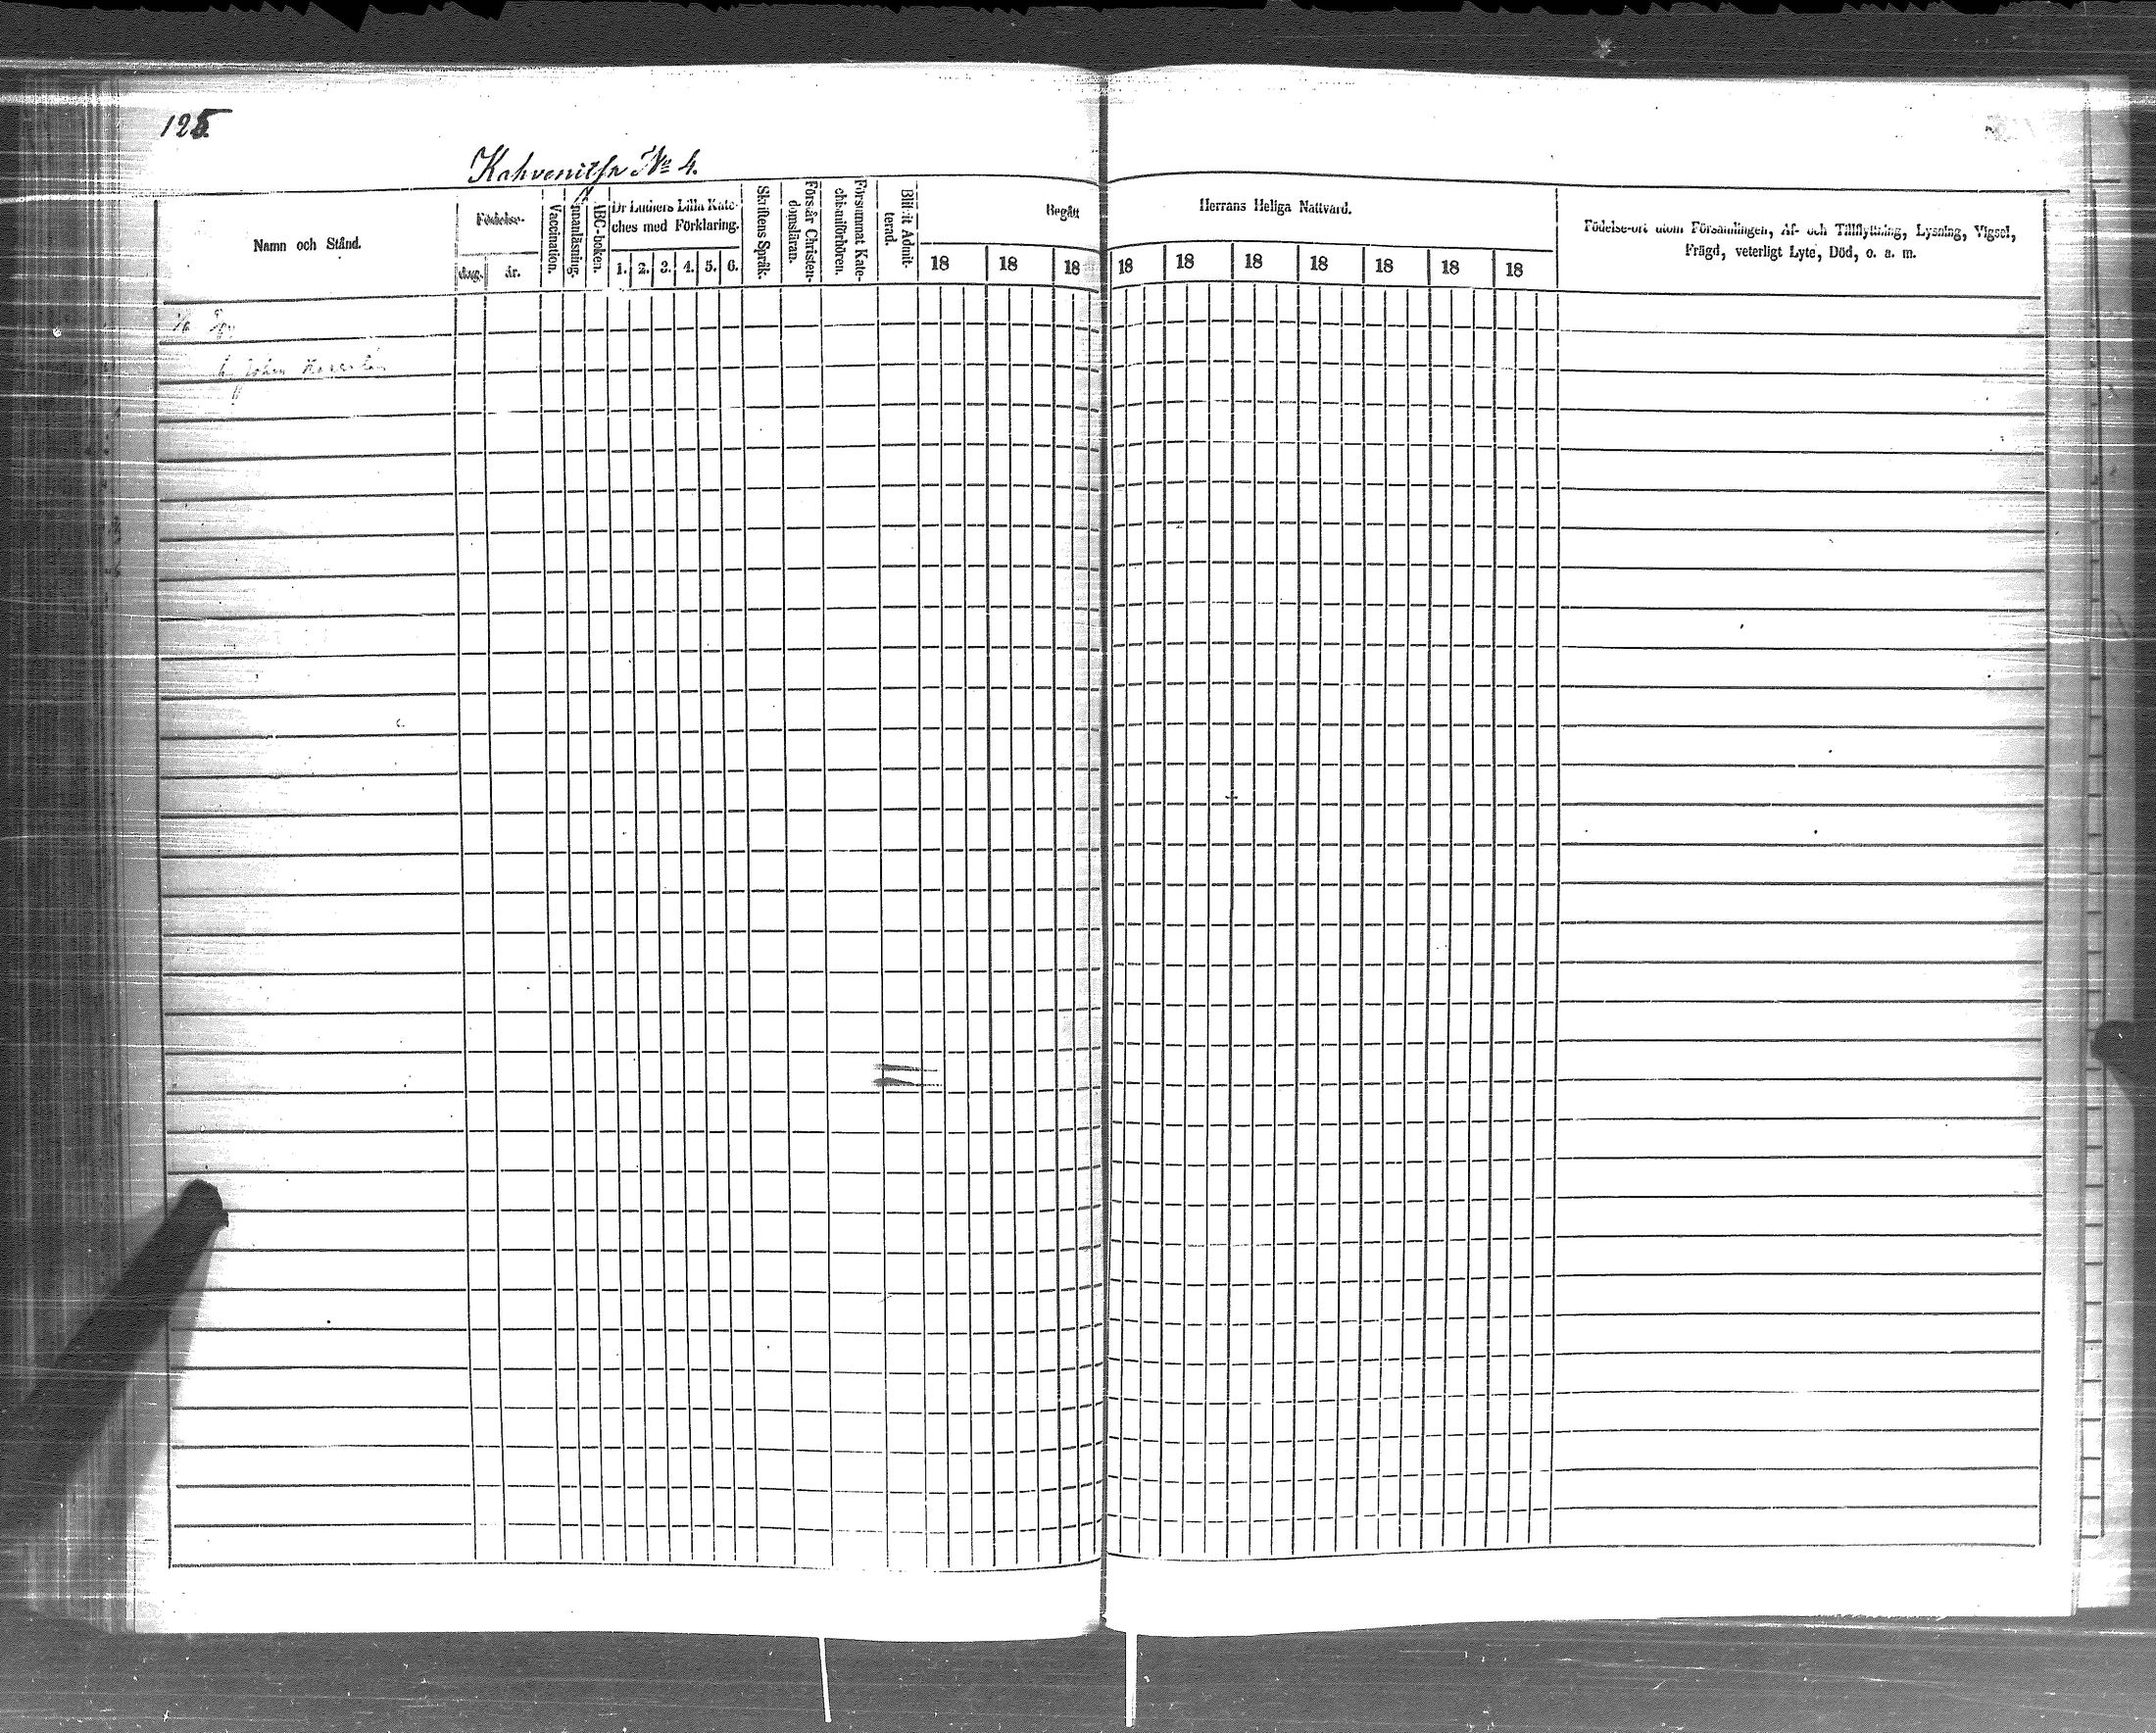 125
Kahvenitsa No 4.
Namn och Stånd.
Födelse-
dag.
år.
Vaccination.
Innanläsning.
ABC-boken.
Dr Luthers Lilla Kate-
ches med Förklaring.
1. 2. 3. 4. 5. 6.
Skriftens Språk.
Förstår Christen-
domsläran.
Försummat Kate-
chismiförhören.
Blifvit Admit-
terad.
Begått
18 18 18
Herrans Heliga Nattvard.
18 18 18 18 18 18 18
Födelse-ort utom Församlingen, Af- och Tillflyttning, Lysning, Vigsel,
Frägd, veterligt Lyte, Död, o. s. m.